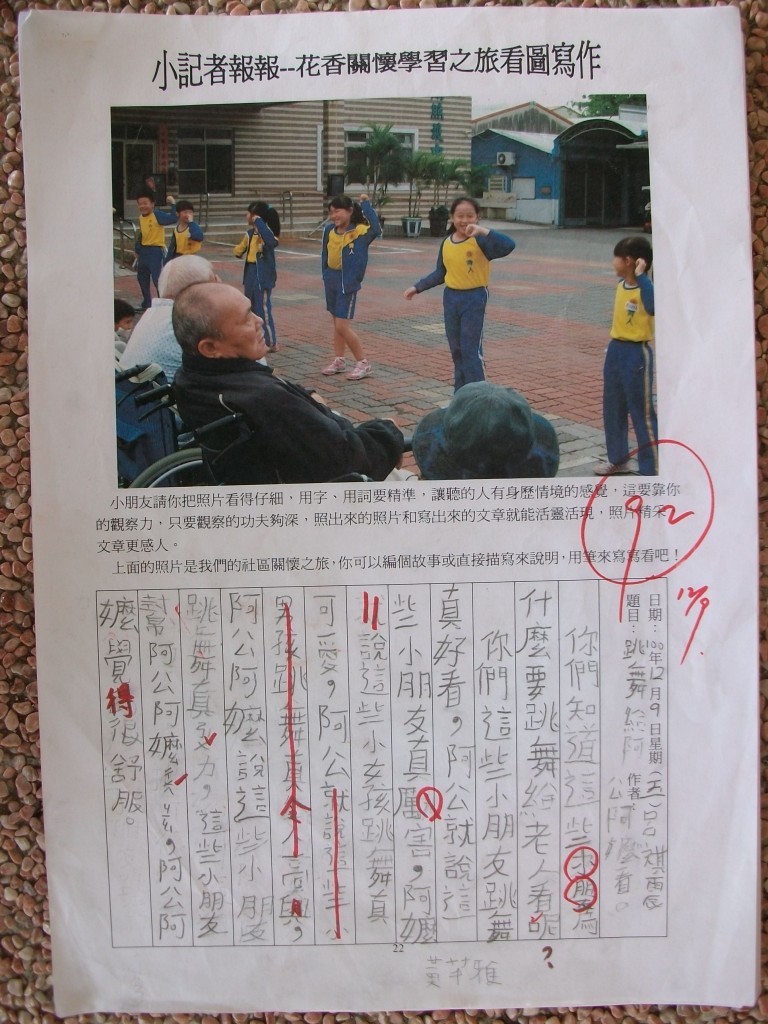 小記者報報--花香關懷學習之旅看圖寫作
小朋友請你把照片看得仔細，用字、用詞要精準，讓聽的人有身歷情境的感覺，這要靠你
的觀察力，只要觀察的功夫夠深，照出來的照片和寫出來的文章就能活靈活現，照片精采、
文章更感人。
上面的照片是我們的社區關懷之旅，你可以編個故事或直接描寫來說明，用筆來寫寫看吧！
92
12/9
日期：100年12月9日星期(五)
題目：跳舞給阿公阿嬤看。
作者：
你們知道這些小朋為
什麼要跳舞給老人看呢？
你們這些小朋友跳舞
真好看，阿公就說這
些小朋友真厲害，阿嬤
說這些小女孩跳舞真
可愛，阿公就說這些小
男孩跳舞真令人
阿公阿嬤說這些小朋友
跳舞真努力，這些小朋友
幫阿公阿嬤，阿公阿
嬤覺得很舒服。
22